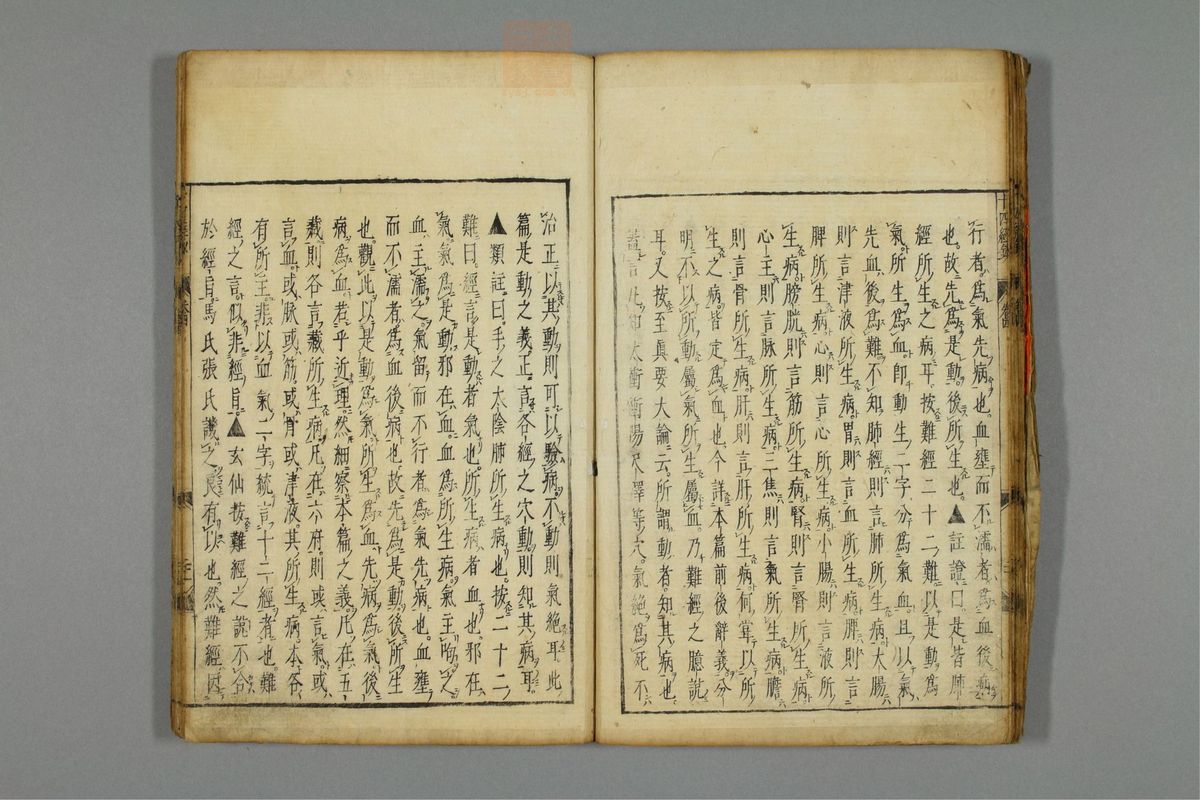 行者爲氣先病也血壅而不濡者爲血後病
也故先爲是動後所生也▲註證曰是皆肺
經所生之病耳按難經二十二難以是動爲
氣所生爲血卽動生二字分爲氣血且以氣
先血後爲難不知肺經則言肺所生病大腸
則言津液所生病胃則言血所生病脾則言
脾所生病心則言心所生病小腸則言液所
生病膀胱則言筋所生病腎則言腎所生病
心主則言脉所生病三焦則言氣所生病膽
則言骨所生病肝則言肝所生病何甞以所
生之病皆定爲血也今詳本篇前後辭義分
明不以所動屬氣所生屬血乃難經之臆說
耳又按至眞要大論云所謂動者知其病也
蓋言凡知太衝衝陽尺澤等穴氣絶爲死不
治正以其動則可以驗病不動則氣絶耳此
篇是動之義正言各經之穴動則知其病耳
▲類註曰手之太陰肺所生病也按二十二
難曰經言是動者氣也所生病者血也邪在
氣氣爲是動邪在血血爲所生病氣主呴之
血主濡之氣留而不行者爲氣先病也血壅
而不濡者爲血後病也故先爲是動後所生
也觀此以是動爲氣所生爲血先病爲氣後
病爲血若乎近理然細察本篇之義凡在五
藏則各言藏所生病凡在六府則或言氣或
言血或脉或筋或骨或津液其所生病本各
有所主非以血氣二字統言十二經者也難
經之言似非經旨▲玄仙按難經之說不合
於經旨馬氏張氏譏之良有以也然難經因